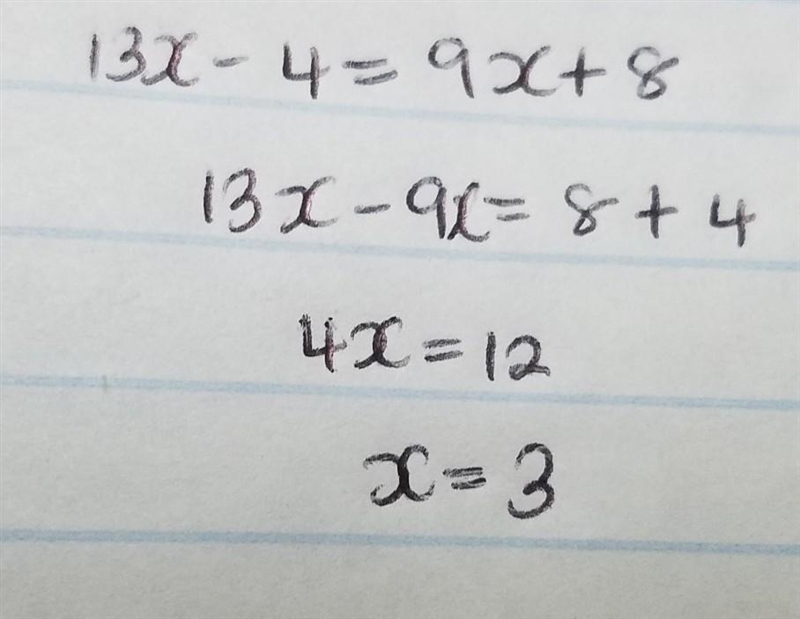 13x - 4 = 9x + 8
13x - 9x = 8 + 4
4x = 12
x = 3